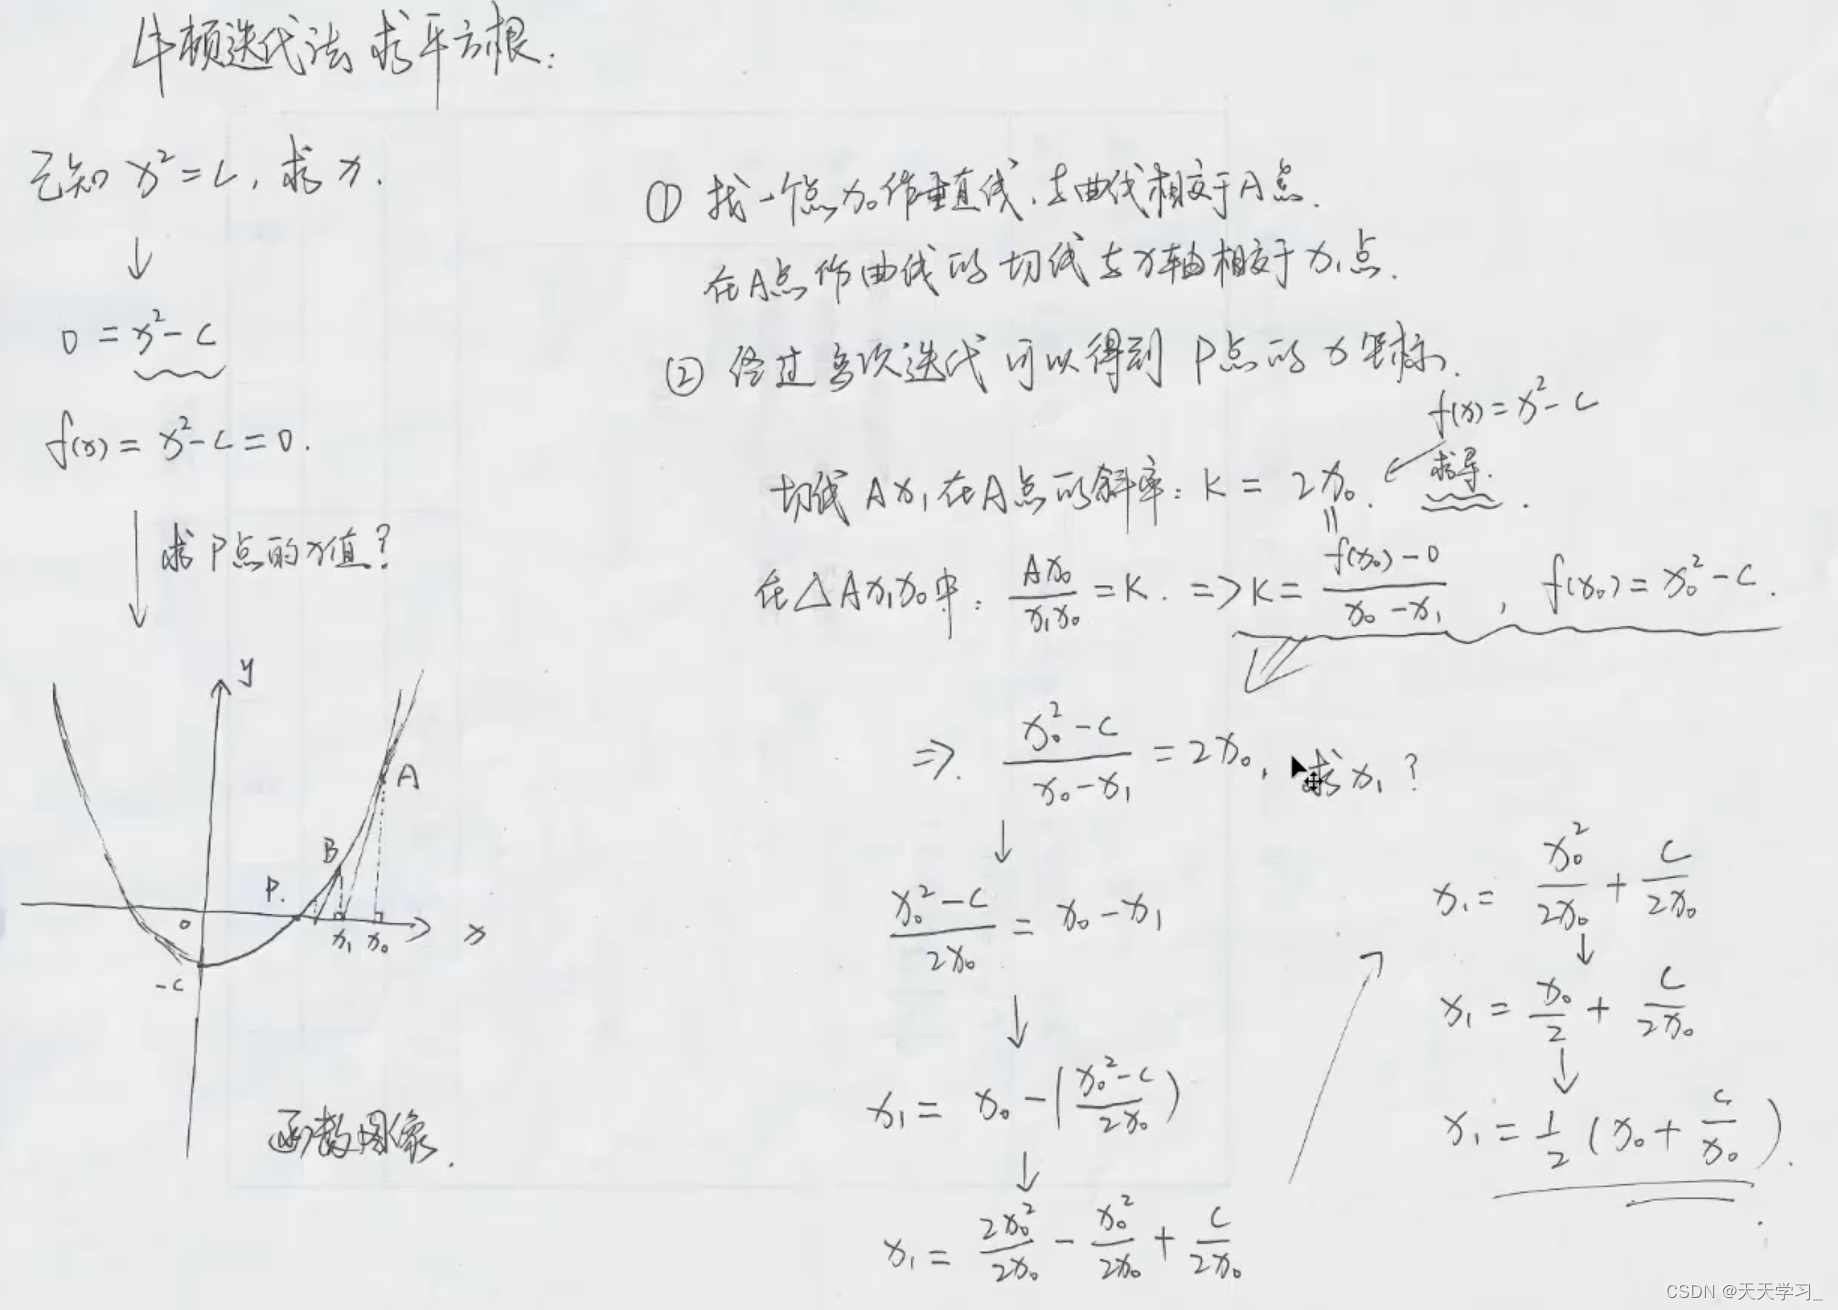 牛顿迭代法求平方根:
已知 x²=c, 求 x.
↓
0 = x²-c
f(x) = x²-c = 0.
↓ 求P点的x值?
y
A
B
P.
0
x₁ x₀ x
-c
函数图像.
① 找一个点x₀作垂直线,与曲线相交于A点.
在A点作曲线的切线与x轴相交于x₁点.
② 经过多次迭代可以得到P点的x坐标.
f(x) = x²-c
切线Ax₁在A点的斜率: K = 2x₀. ← 求导.
=
在△Ax₁x₀中: Ax₀/x₁x₀ = K. => K = (f(x₀)-0)/(x₀-x₁), f(x₀) = x₀²-c.
=>. (x₀²-c)/(x₀-x₁) = 2x₀, 求x₁?
↓
(x₀²-c)/2x₀ = x₀-x₁
↓
x₁ = x₀-((x₀²-c)/2x₀)
↓
x₁ = 2x₀²/2x₀ - x₀²/2x₀ + c/2x₀
x₁ = x₀²/2x₀ + c/2x₀
↓
x₁ = x₀/2 + c/2x₀
↓
x₁ = 1/2 (x₀ + c/x₀).
CSDN @天天学习_